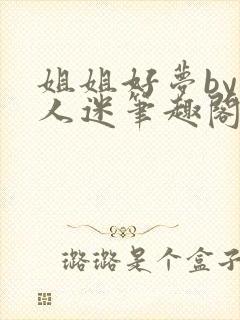 姐姐好夢by
人迷筆趣閣
璐璐是个盒子